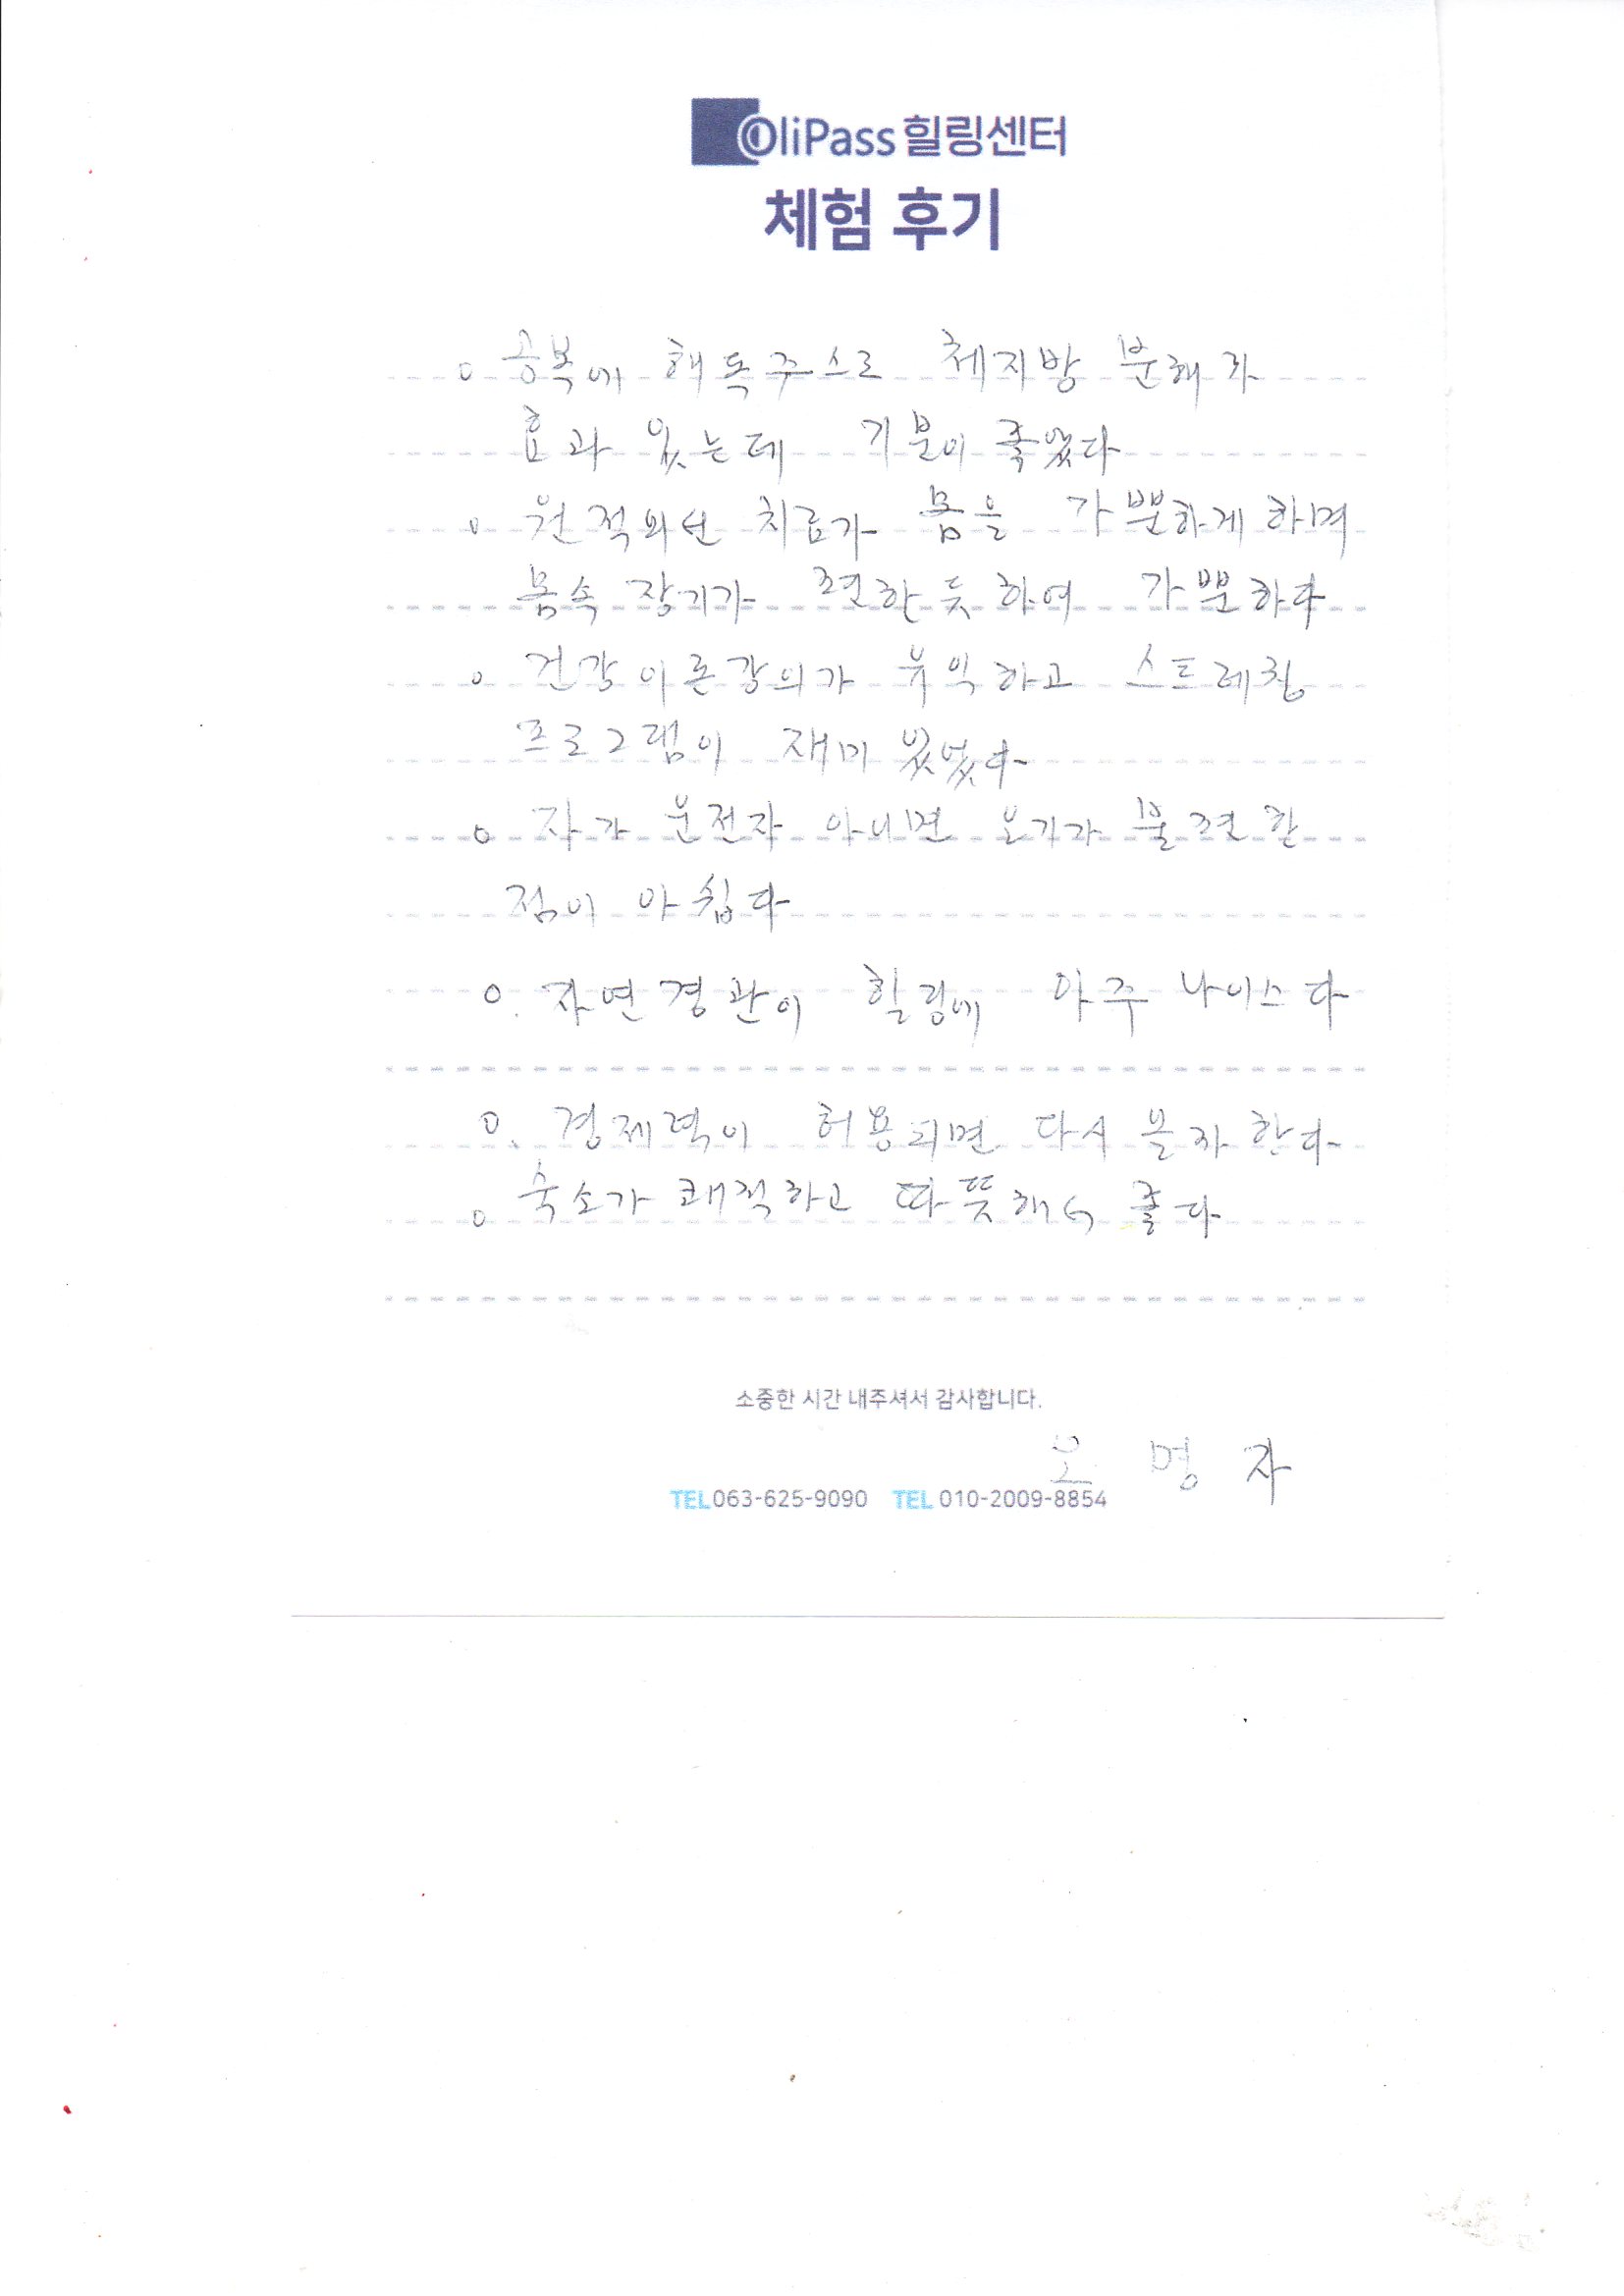 OliPass 힐링센터
체험 후기
o 공복에 해독주스로 체지방 분해가
효과 있는데 기분이 좋았다
o 원적외선 치료가 몸을 가뿐하게 하며
몸속 장기가 편한듯 하여 가뿐하다
o 건강이론강의가 유익하고 스트레칭
프로그램이 재미 있었다
o 자가 운전자 아니면 오기가 불편한
점이 아쉽다
o. 자연경관이 힐링에 아주 나이스다
o. 경제력이 허용되면 다시 올자 한다
o 숙소가 쾌적하고 따뜻해서 좋다
소중한 시간 내주셔서 감사합니다.
오 명 자
TEL 063-625-9090 TEL 010-2009-8854